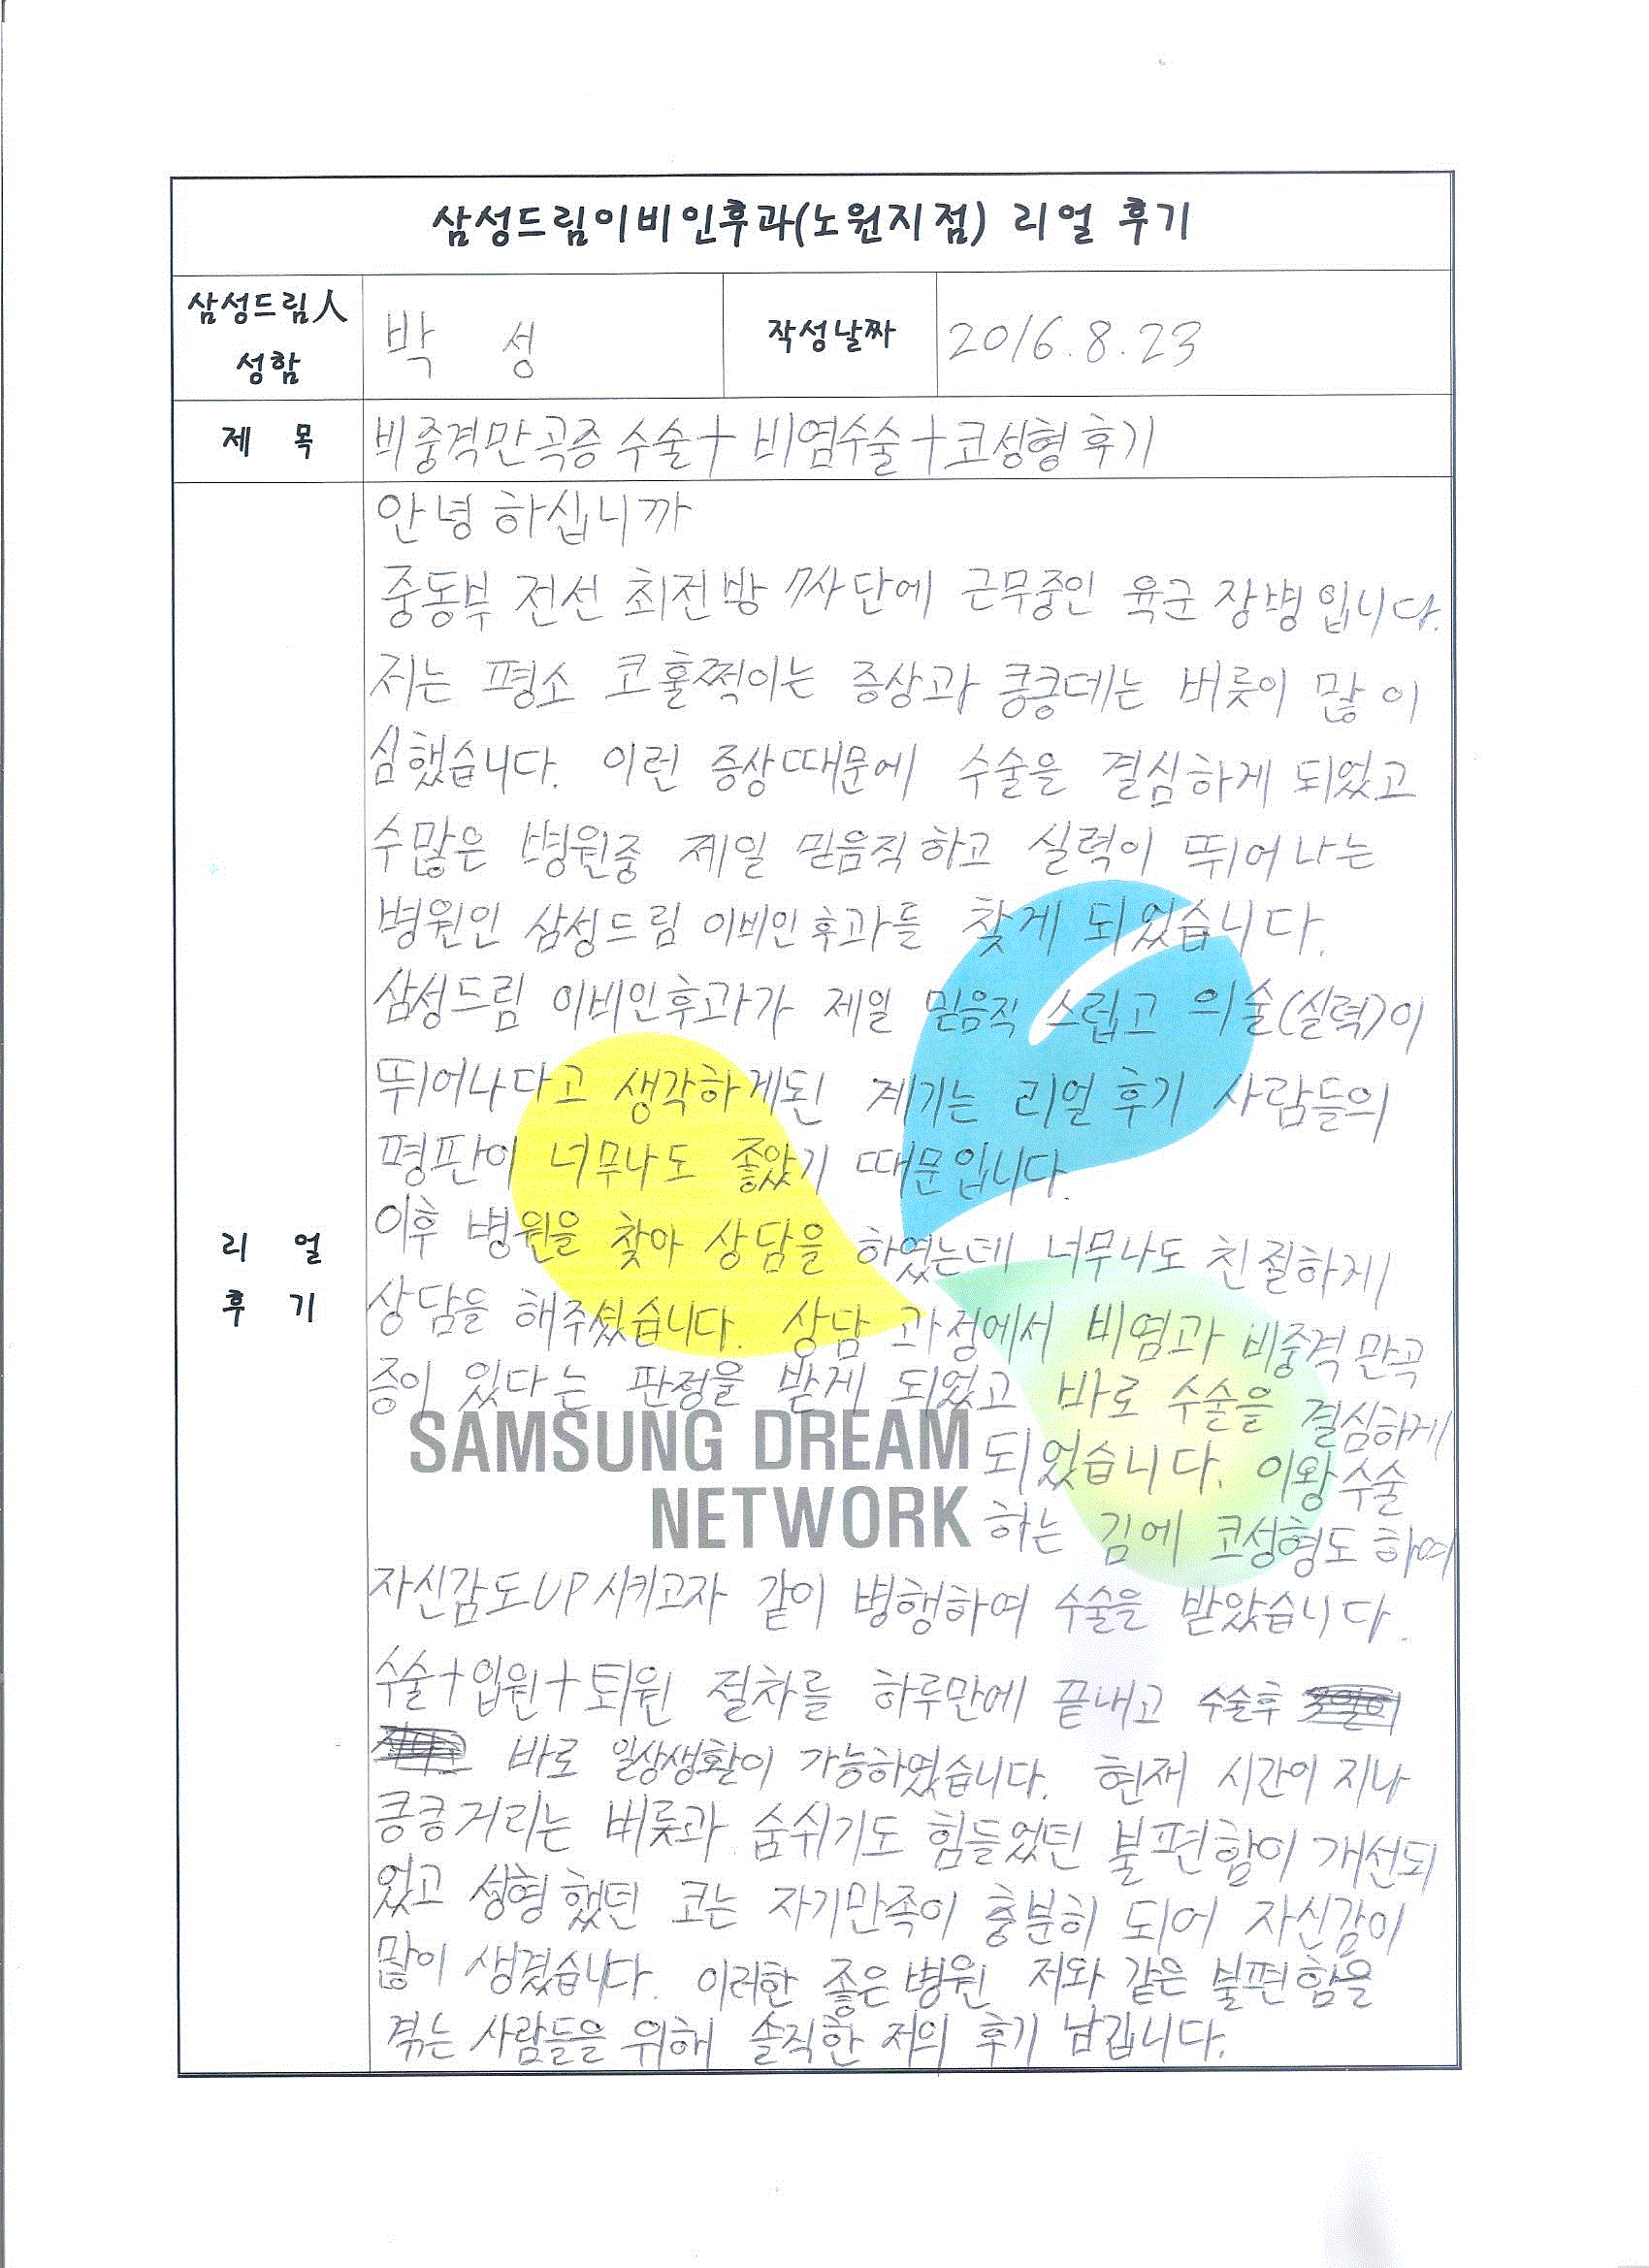 삼성드림이비인후과(노원지점) 리얼 후기
삼성드림人
성함
박 성
작성날짜
2016.8.23
제 목
비중격만곡증 수술+ 비염수술+코성형후기
리 얼
후 기
안녕하십니까
중동부 전선 최전방 7사단에 근무중인 육군 장병입니다.
저는 평소 코훌쩍이는 증상과 킁킁데는 버릇이 많이
심했습니다. 이런 증상때문에 수술을 결심하게 되었고
수많은 병원중 제일 믿음직하고 실력이 뛰어나는
병원인 삼성드림 이비인후과를 찾게 되었습니다.
삼성드림 이비인후과가 제일 믿음직 스럽고 의술(실력)이
뛰어나다고 생각하게된 계기는 리얼후기 사람들의
평판이 너무나도 좋았기 때문입니다.
이후 병원을 찾아 상담을 하였는데 너무나도 친절하게
상담을 해주셨습니다. 상담 과정에서 비염과 비중격만곡
증이 있다는 판정을 받게 되었고 바로 수술을 결심하게
SAMSUNG DREAM
되었습니다. 이왕수술
NETWORK
하는 김에 코성형도 하여
자신감도UP시키고자 같이 병행하여 수술을 받았습니다.
수술+입원+퇴원 절차를 하루만에 끝내고 수술후
바로 일상생활이 가능하였습니다. 현재 시간이 지나
킁킁거리는 버릇과 숨쉬기도 힘들었던 불편함이 개선되
었고 성형했던 코는 자기만족이 충분히 되어 자신감이
많이 생겼습니다. 이러한 좋은병원 저와 같은 불편함을
겪는 사람들을 위해 솔직한 저의 후기 남깁니다.